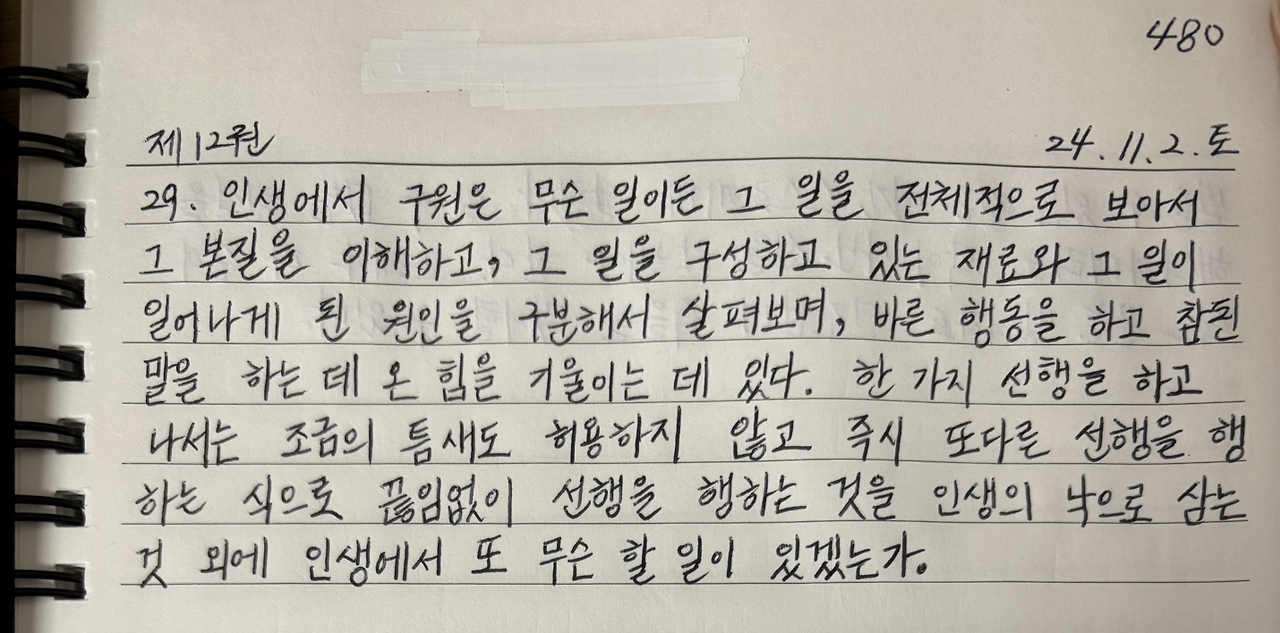 480
제12권 24.11.2.토
29. 인생에서 구원은 무슨 일이든 그 일을 전체적으로 보아서
그 본질을 이해하고, 그 일을 구성하고 있는 재료와 그 일이
일어나게 된 원인을 구분해서 살펴보며, 바른 행동을 하고 참된
말을 하는 데 온 힘을 기울이는 데 있다. 한 가지 선행을 하고
나서는 조금의 틈새도 허용하지 않고 즉시 또다른 선행을 행
하는 식으로 끊임없이 선행을 행하는 것을 인생의 낙으로 삼는
것 외에 인생에서 또 무슨 할 일이 있겠는가.